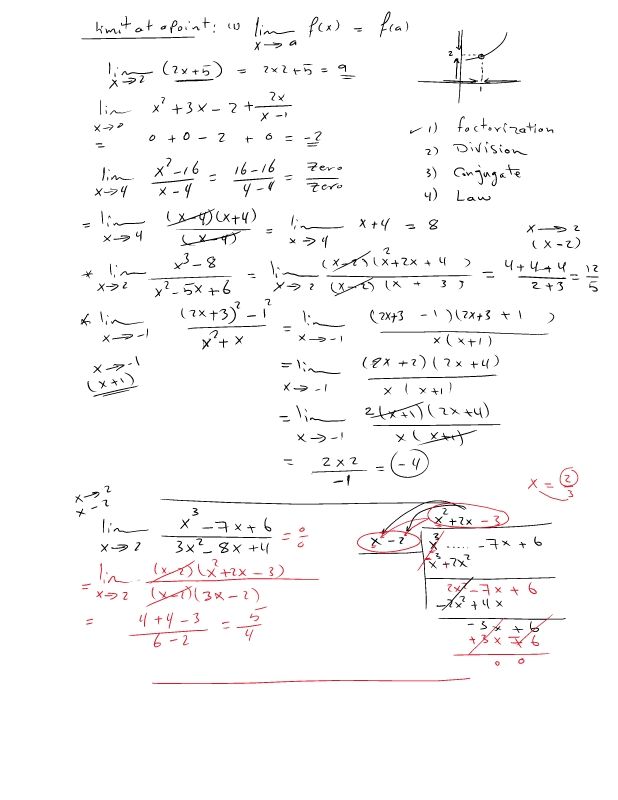 limit at a point: (1) lim x→a f(x) = f(a)
2
1
lim x→2 (2x+5) = 2x2+5 = 9
lim x→0 x² + 3x - 2 + 2x/(x-1)
= 0 + 0 - 2 + 0 = -2
✓ 1) factorization
2) Division
3) Conjugate
4) Law
lim x→4 (x²-16)/(x-4) = (16-16)/(4-4) = Zero/Zero
= lim x→4 (x-4)(x+4)/(x-4) = lim x→4 x+4 = 8
x→2
(x-2)
* lim x→2 (x³-8)/(x²-5x+6) = lim x→2 (x-2)(x²+2x+4)/(x-2)(x + 3) = (4+4+4)/(2+3) = 12/5
* lim x→-1 ((2x+3)² - 1²)/(x²+x) = lim x→-1 (2x+3 - 1)(2x+3 + 1)/x(x+1)
x→-1
(x+1)
= lim x→-1 (2x+2)(2x+4)/x(x+1)
= lim x→-1 2(x+1)(2x+4)/x(x+1)
= (2x2)/-1 = -4
x→2
x-2
x = 2
3
lim x→2 (x³-7x+6)/(3x²-8x+4) = 0/0
= lim x→2 (x-2)(x²+2x-3)/(x-2)(3x-2)
= (4+4-3)/(6-2) = 5/4
x²+2x-3
x-2
x³ ..... -7x+6
x³+2x²
2x²-7x+6
-2x²+4x
-3x+6
+3x+6
0 0